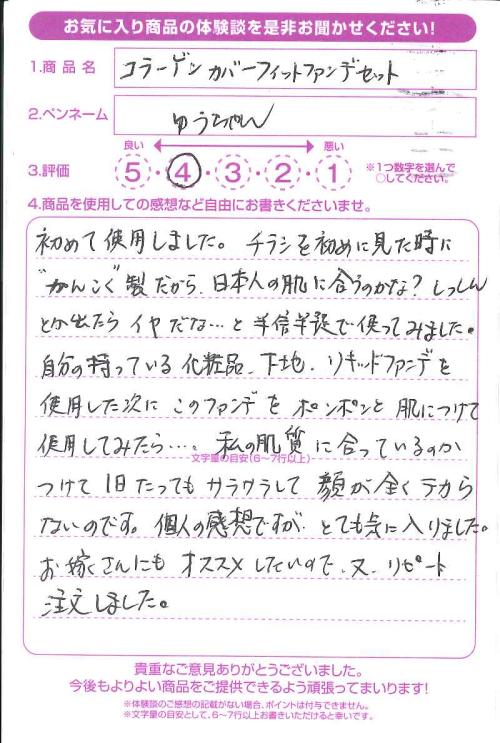 お気に入り商品の体験談を是非お聞かせください!
1.商品名
コラーゲン カバーフィットファンデセット
2.ペンネーム
ゆうちゃん
良い 悪い
3.評価
5・4・3・2・1
※1つ数字を選んで
○してください。
4.商品を使用しての感想など自由にお書きくださいませ。
初めて使用しました。チラシを初めに見た時に
"かんこく"製だから、日本人の肌に合うのかな?しっしん
とか出たらイヤだな…と半信半疑で使ってみました。
自分の持っている化粧品、下地、リキッドファンデを
使用した次にこのファンデをポンポンと肌につけて
使用してみたら…、私の肌質に合っているのか
文字量の目安(6~7行以上)
つけて1日たってもサラサラして顔が全くテカら
ないのです。個人の感想ですが、とても気に入りました。
お嫁さんにもオススメしたいので、又、リピート
注文しました。
貴重なご意見ありがとうございました。
今後もよりよい商品をご提供できるよう頑張ってまいります!
※体験談のご感想の記載がない場合、ポイントは付与できません。
※文字量の目安として、6~7行以上お書きいただけると幸いです。